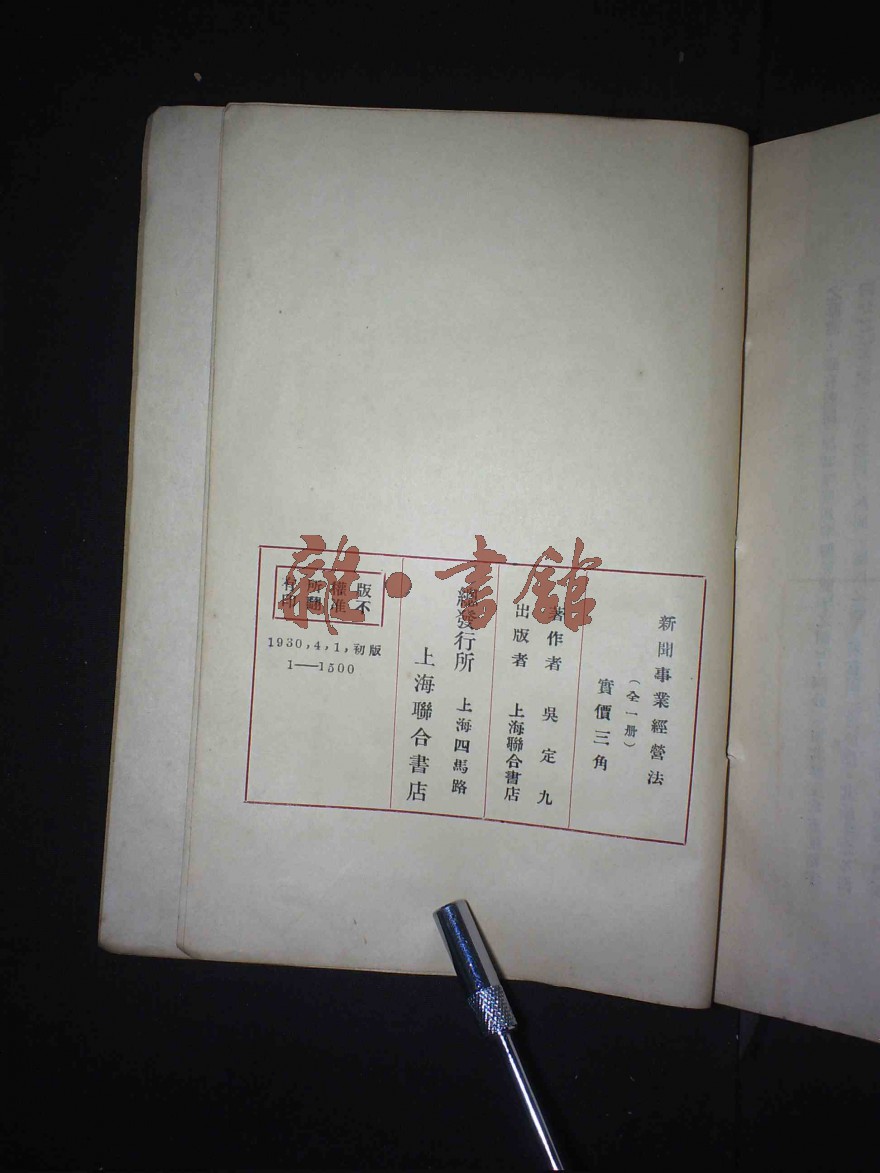 新聞事業經營法
（全一册）
實價三角
著作者 吳定九
出版者 上海聯合書店
總發行所 上海四馬路
上海聯合書店
版權所有
不准翻印
1930,4,1,初版
1——1500
雜·書館